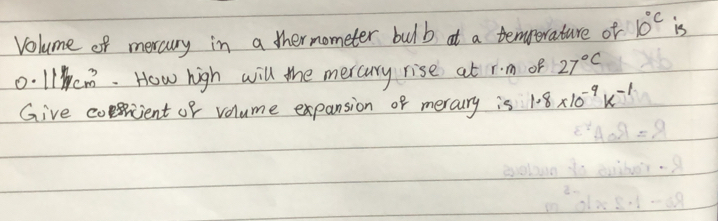 Volume of mercury in a thermometer bulb at a temperature of 10°C is
0.11 cm³. How high will the mercury rise at r.m of 27°C
Give coefficient of volume expansion of mercury is 1.8 x10⁻⁴ K⁻¹